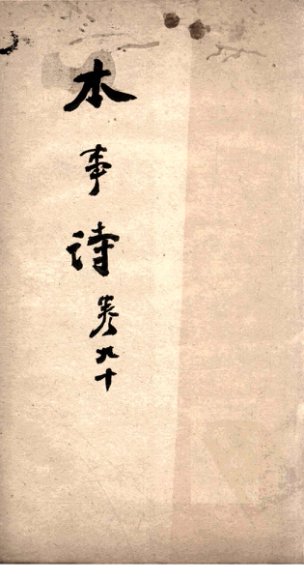 本事詩卷九十